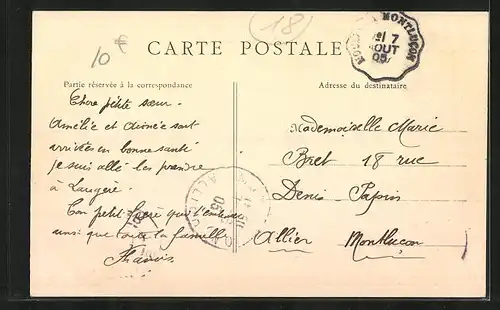 10 €
(18)
CARTE POSTALE
MONTLUÇON
7
AOUT
05
Partie réservée à la correspondance
Adresse du destinataire
Chère petite sœur.
Amélie et sont
arrivées en bonne santé
je suis allé les prendre
à
Ton petit frère qui t'embrasse
ainsi que toute la famille
Mademoiselle Marie
Bret 18 rue
Denis Papin
Allier Montlucon
ALLIER
05